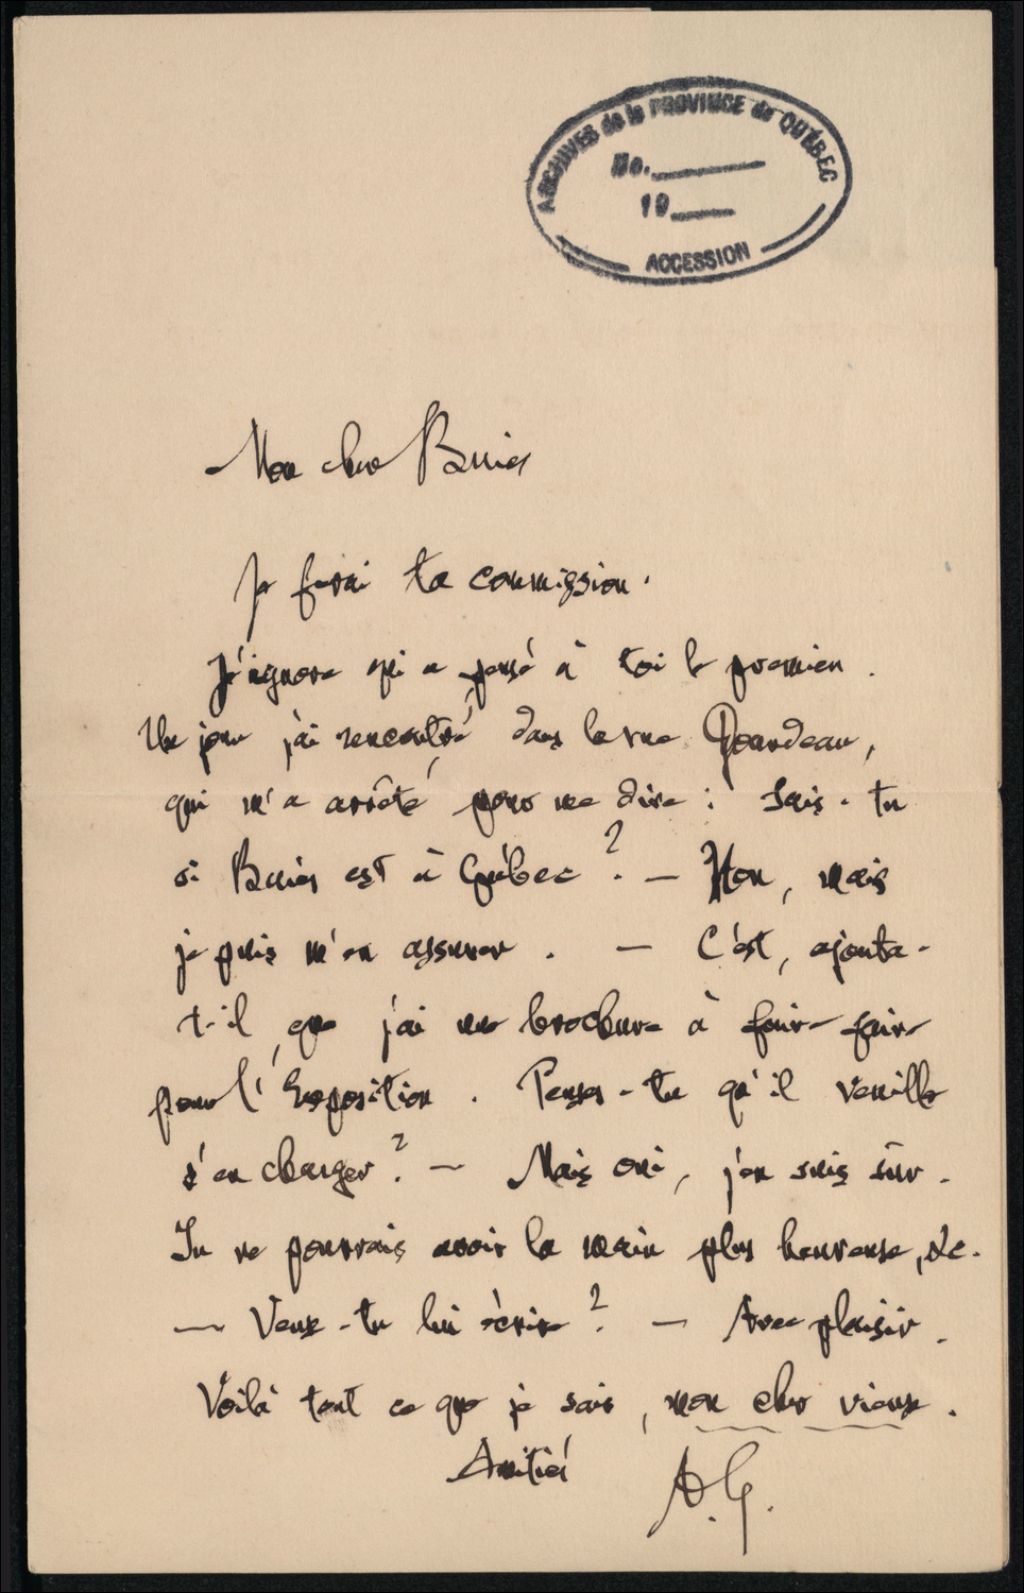 ARCHIVES de la PROVINCE de QUÉBEC
No.
19
ACCESSION
Mon cher Buies
Je ferai ta commission.
J'ignore qui a pensé à toi le premier.
Un jour j'ai rencontré dans la rue Gourdeau,
qui m'a arrêté pour me dire : Sais-tu
si Buies est à Québec ? — Non, mais
je puis m'en assurer. — C'est, ajouta-
t-il, que j'ai une brochure à faire faire
pour l'Exposition. Penses-tu qu'il veuille
s'en charger ? — Mais oui, j'en suis sûr.
Tu ne pourrais avoir la main plus heureuse, &c.
— Veux-tu lui écrire ? — Avec plaisir.
Voilà tout ce que je sais, mon cher vieux.
Amitiés
A.G.